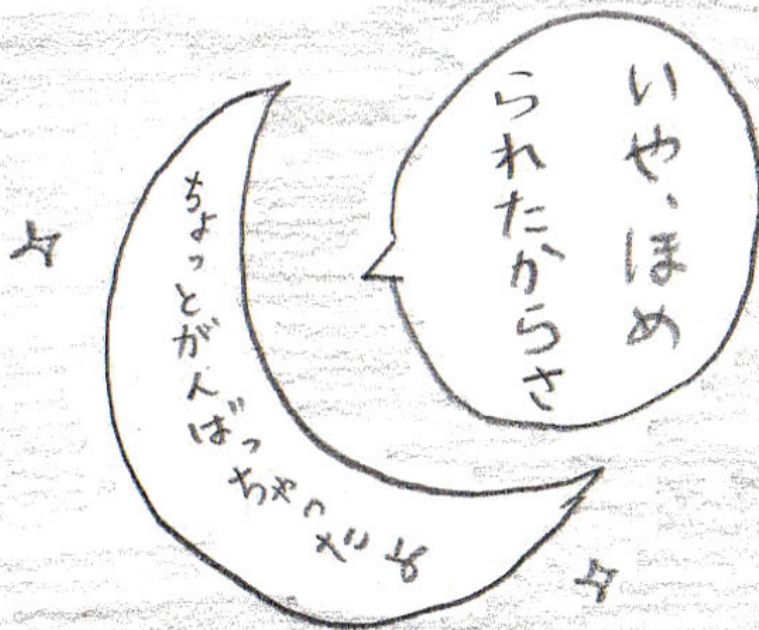 いや、ほめ
られたからさ
ちょっとがんばっちゃったよ